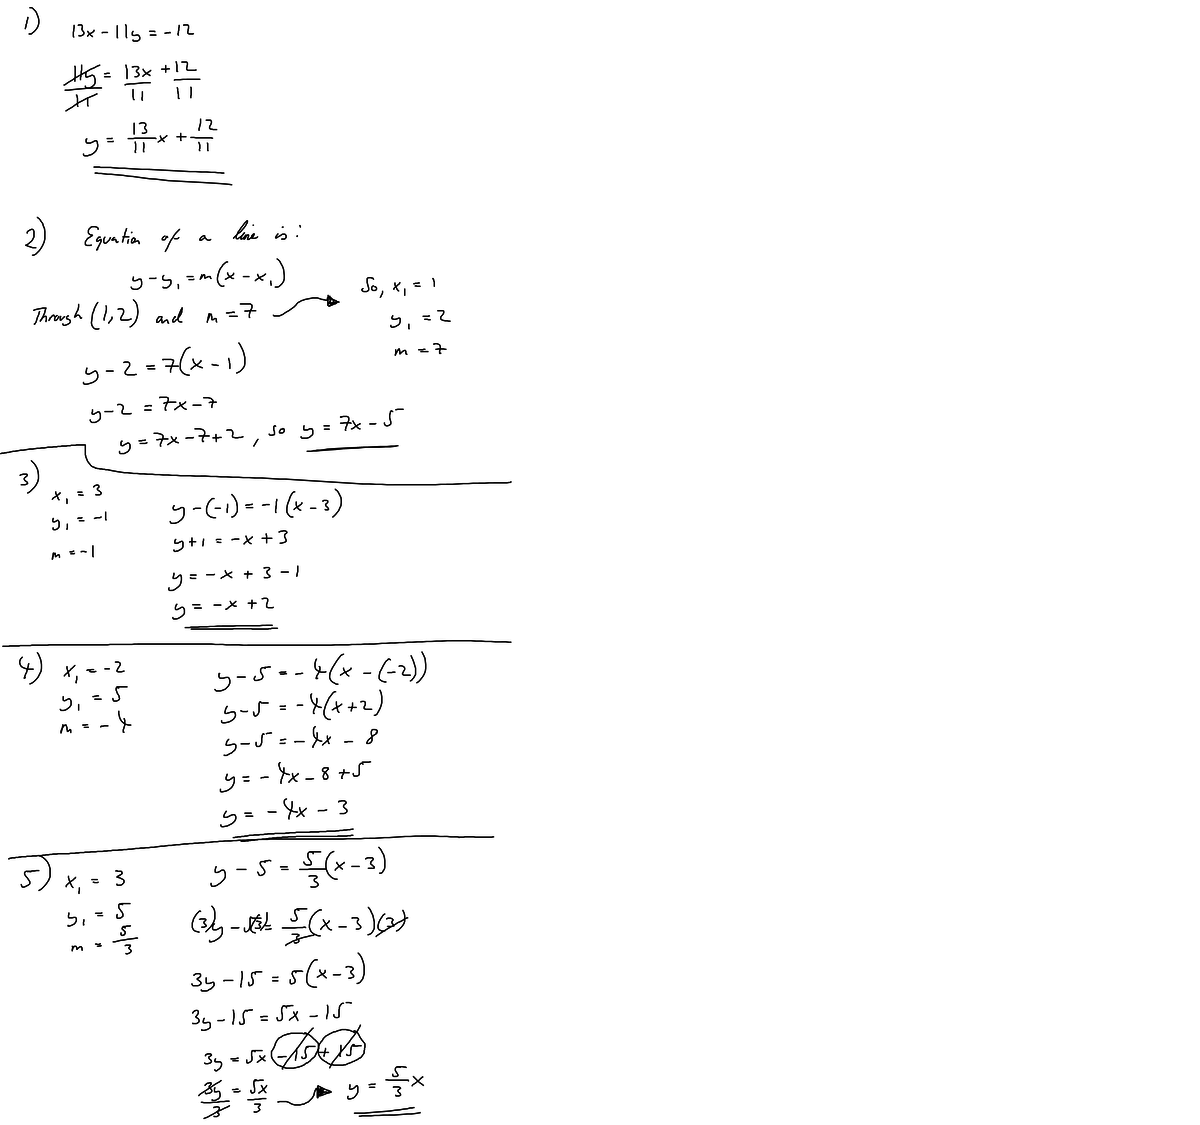 1)
13x - 11y = -12
11y/11 = 13x/11 + 12/11
y = 13/11 x + 12/11
2) Equation of a line is:
y - y₁ = m(x - x₁)
Through (1,2) and m = 7
So, x₁ = 1
y₁ = 2
m = 7
y - 2 = 7(x - 1)
y - 2 = 7x - 7
y = 7x - 7 + 2, so y = 7x - 5
3)
x₁ = 3
y₁ = -1
m = -1
y - (-1) = -1(x - 3)
y + 1 = -x + 3
y = -x + 3 - 1
y = -x + 2
4)
x₁ = -2
y₁ = 5
m = -4
y - 5 = -4(x - (-2))
y - 5 = -4(x + 2)
y - 5 = -4x - 8
y = -4x - 8 + 5
y = -4x - 3
5)
x₁ = 3
y₁ = 5
m = 5/3
y - 5 = 5/3(x - 3)
(3)y - 5(3) = 5/3(x - 3)(3)
3y - 15 = 5(x - 3)
3y - 15 = 5x - 15
3y = 5x - 15 + 15
3y/3 = 5x/3
y = 5/3 x